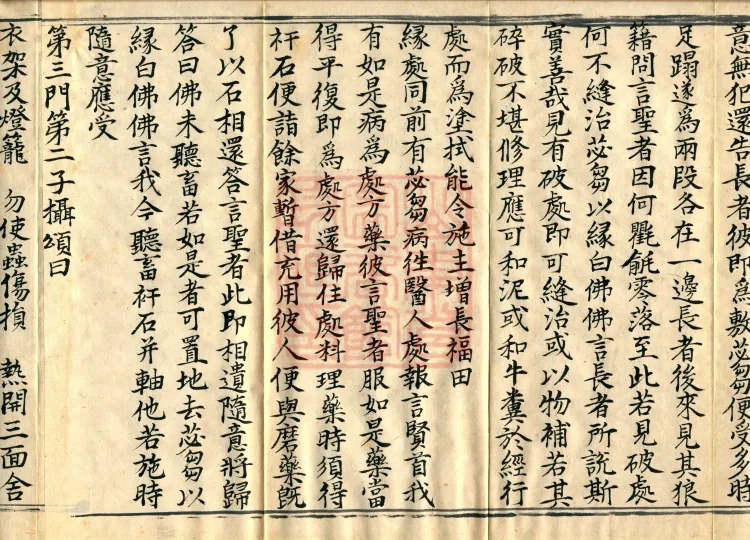 意無犯還告長者彼即為敷苾芻便受多時
足蹋遂為兩段各在一邊長者後來見其狼
籍問言聖者因何氍毹零落至此若見破處
何不縫治苾芻以緣白佛佛言長者所說斯
實善哉見有破處即可縫治或以物補若其
碎破不堪修理應可和泥或和牛糞於經行
處而為塗拭能令施主增長福田
緣處同前有苾芻病往醫人處報言賢首我
有如是病為處方藥彼言聖者服如是藥當
得平復即為處方還歸住處料理藥時須得
矸石便詣餘家暫借充用彼人便與磨藥既
了以石相還答言聖者此即相遺隨意將歸
答曰佛未聽畜若如是者可置地去苾芻以
緣白佛佛言我今聽畜矸石并軸他若施時
隨意應受
第三門第二子攝頌曰
衣架及燈籠　勿使蟲傷損　熱開三面舍